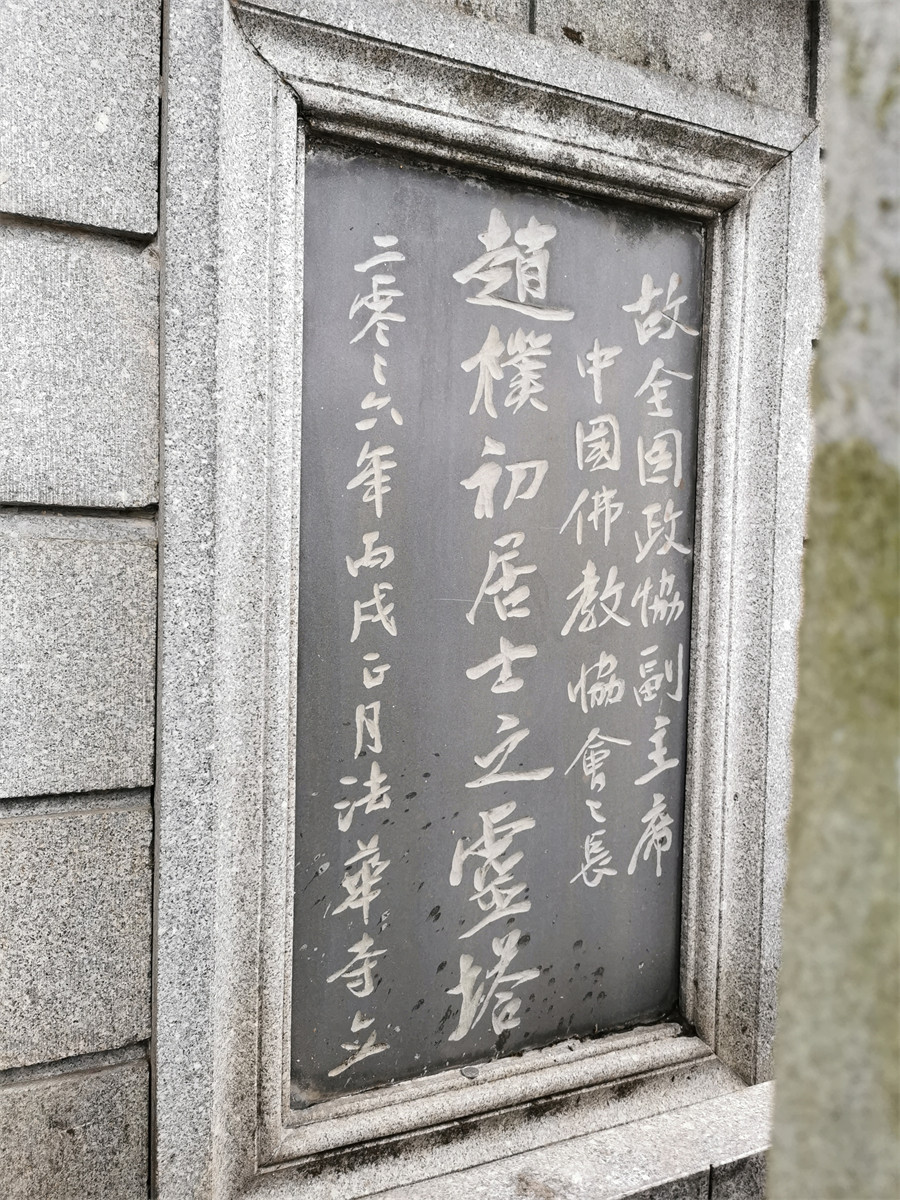 故全国政協副主席
中國佛教協會〻長
趙樸初居士之靈塔
二零〻六年丙戌正月法華寺立